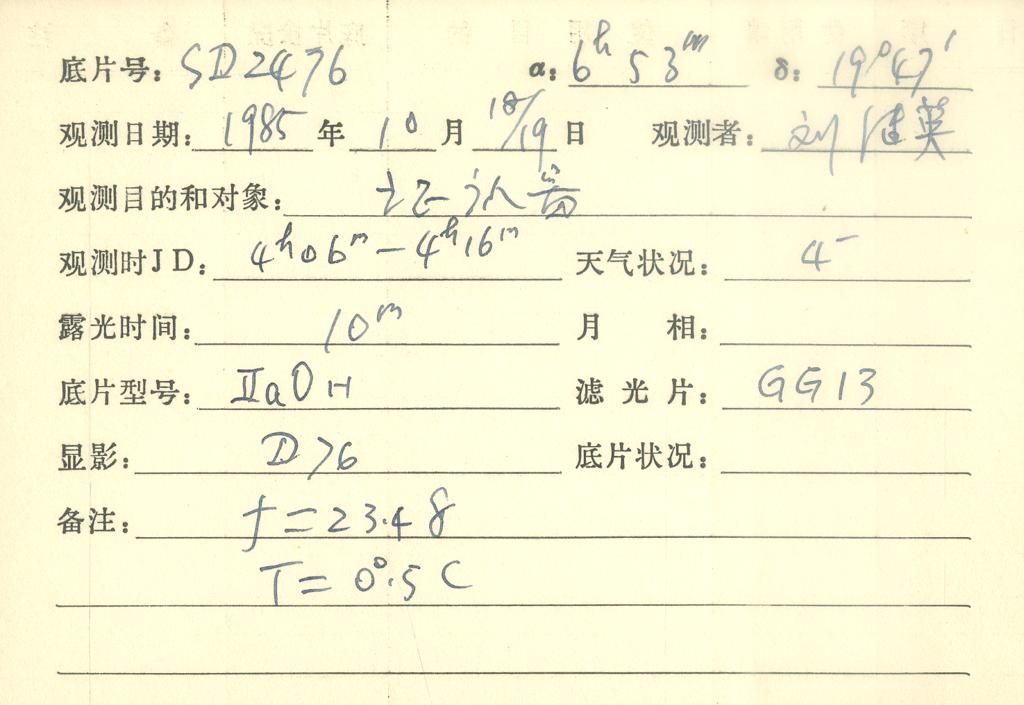 底片号: SD2476 α: 6ʰ53ᵐ δ: 19°47′
观测日期: 1985 年 10 月 18/19 日 观测者: 刘
观测目的和对象: 证认
观测时JD: 4ʰ06ᵐ-4ʰ16ᵐ 天气状况: 4⁻
露光时间: 10ᵐ 月 相:
底片型号: IIaOH 滤光片: GG13
显影: D76 底片状况:
备注: f=23.48
T=0°.5C